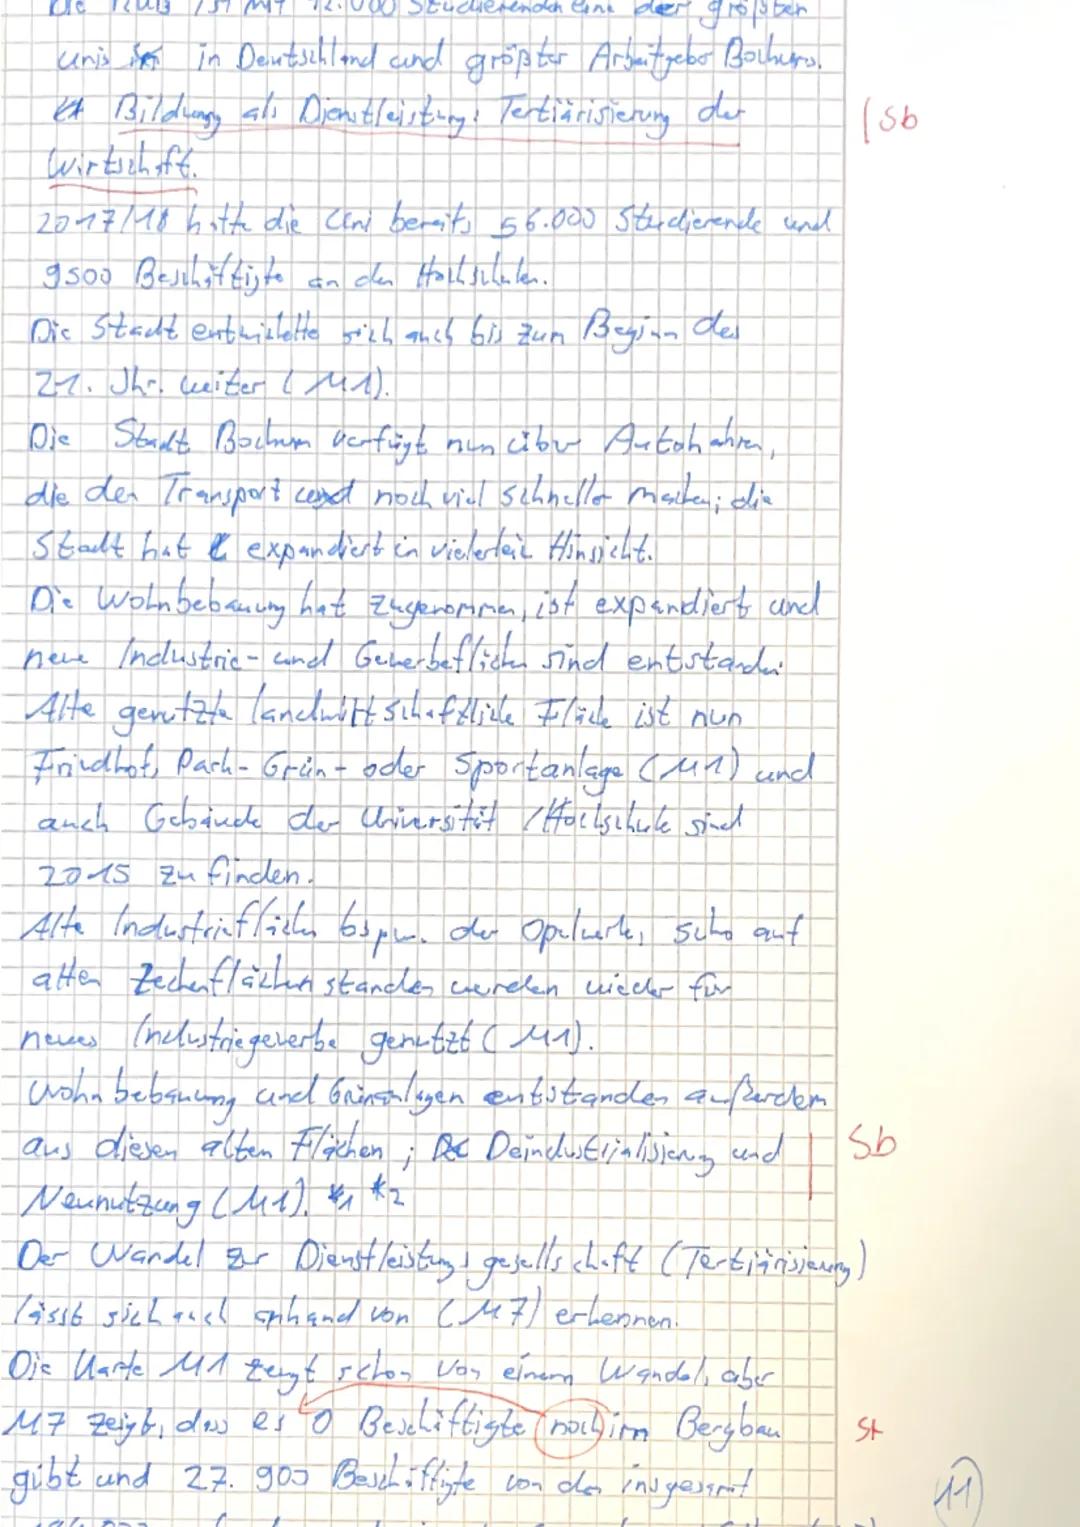 Die RUB ist mit 42.000 Studierenden eine der größten
Unis in Deutschland und größter Arbeitgeber Bochums.
Bildung als Dienstleistung; Tertiärisierung der
Wirtschaft.
|Sb
2017/18 hatte die Uni bereits 56.000 Studierende und
9500 Beschäftigte an den Hochschulen.
Die Stadt entwickelte sich auch bis zum Beginn des
21. Jhr. weiter (M1).
Die Stadt Bochum verfügt nun über Autobahnen,
die den Transport noch viel schneller machen; die
Stadt hat expandiert in vielerlei Hinsicht.
Die Wohnbebauung hat zugenommen, ist expandiert und
neue Industrie- und Gewerbeflächen sind entstanden.
Alte genutzte landwirtschaftliche Fläche ist nun
Friedhof, Park- Grün- oder Sportanlage (M1) und
auch Gebäude der Universität / Hochschule sind
2015 zu finden.
Alte Industrieflächen bspw. der Opelwerke, auf
alten Zechenflächen standen werden wieder für
neues Industriegewerbe genutzt (M1).
Wohnbebauung und Grünanlagen entstanden außerdem
aus diesen alten Flächen; Deindustrialisierung und
Sb
Neunutzung (M1). *1 *2
Der Wandel zur Dienstleistungsgesellschaft (Tertiärisierung)
lässt sich auch anhand von (M7) erkennen.
Die Karte M1 zeugt schon von einem Wandel, aber
M7 zeigt, dass es 0 Beschäftigte noch im Bergbau
St
gibt und 27.900 Beschäftigte von den insgesamt
11